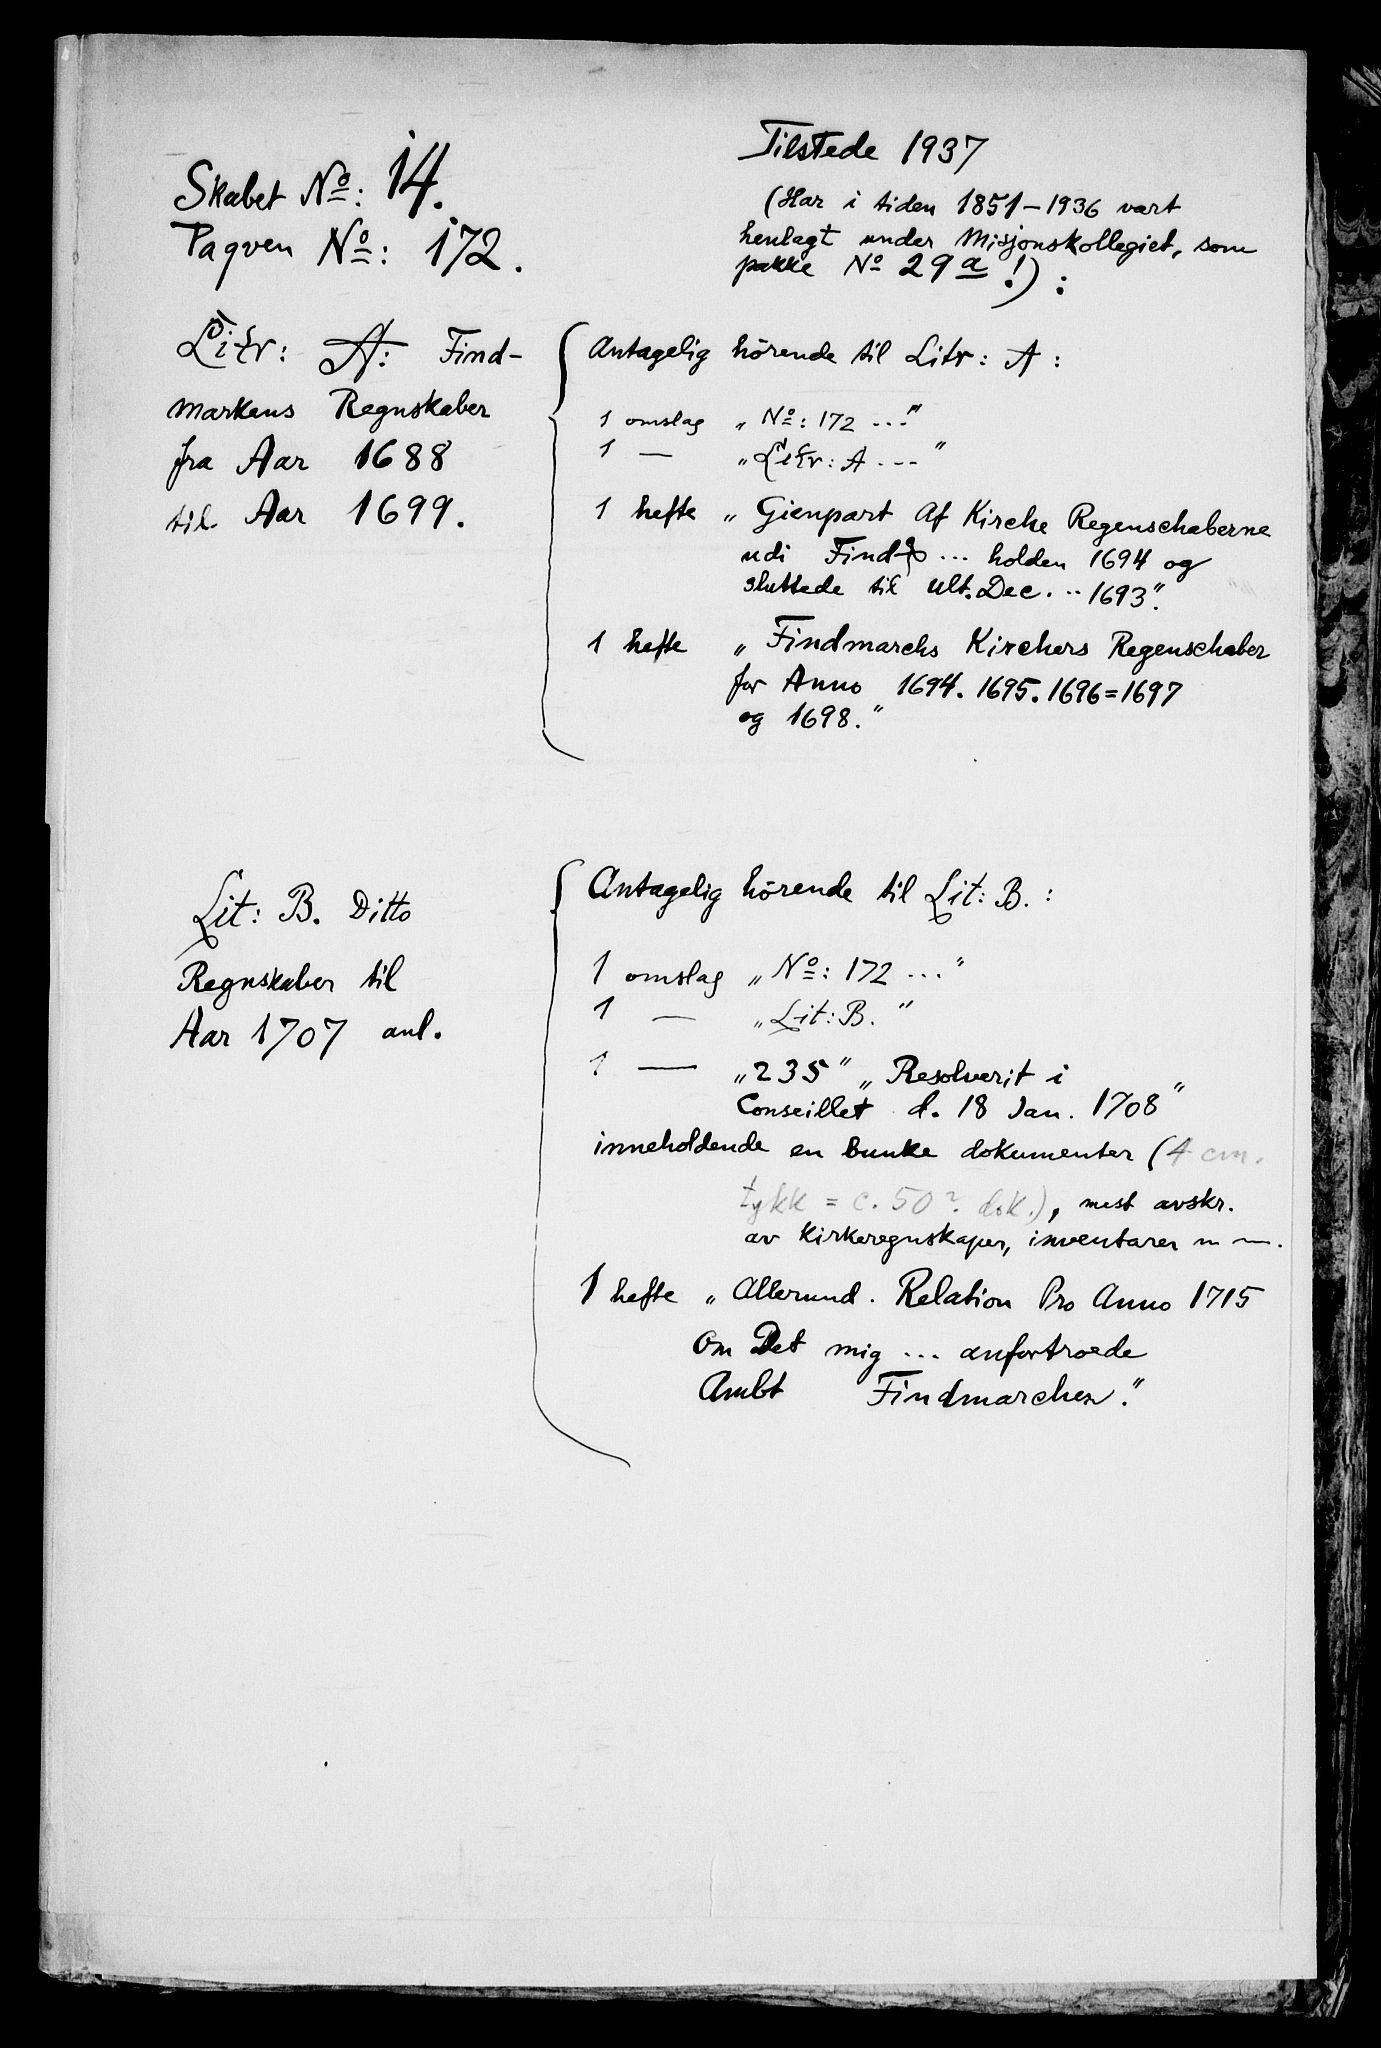 Skabet No: 14.
Paqven No: 172.
Tilstede 1937
(Har i tiden 1851-1936 vært
henlagt under Misjonskollegiet, som
pakke No 29a!):
Litr: A: Find-
markens Regnskaber
fra Aar 1688
til Aar 1699.
Antagelig hörende til Litr: A:
1 omslag „No: 172 ..."
1 — „Litr: A ..."
1 hefte „Gienpart Af Kirche Regenschaberne
udi Find ... holden 1694 og
sluttede til ult. Dec. .. 1693".
1 hefte „Findmarchs Kirchers Regenschaber
for Anno 1694. 1695. 1696=1697
og 1698."
Lit: B. Ditto
Regnskaber til
Aar 1707 anl.
Antagelig hörende til Lit: B.:
1 omslag „No: 172 ..."
1 — „Lit: B."
1 — „235" „Resolverit i
Conseillet d. 18 Jan. 1708"
inneholdende en bunke dokumenter (4 cm.
tykk = c. 50? dok.), mest avskr.
av kirkeregnskaper, inventarer m m.
1 hefte „Allerund. Relation Pro Anno 1715
Om Det mig ... anfortroede
Ambt Findmarchen."